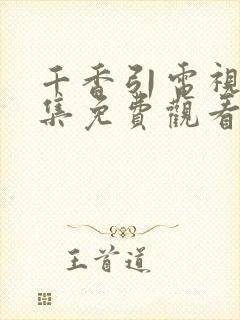 千香引電視
集免費觀看
王首道